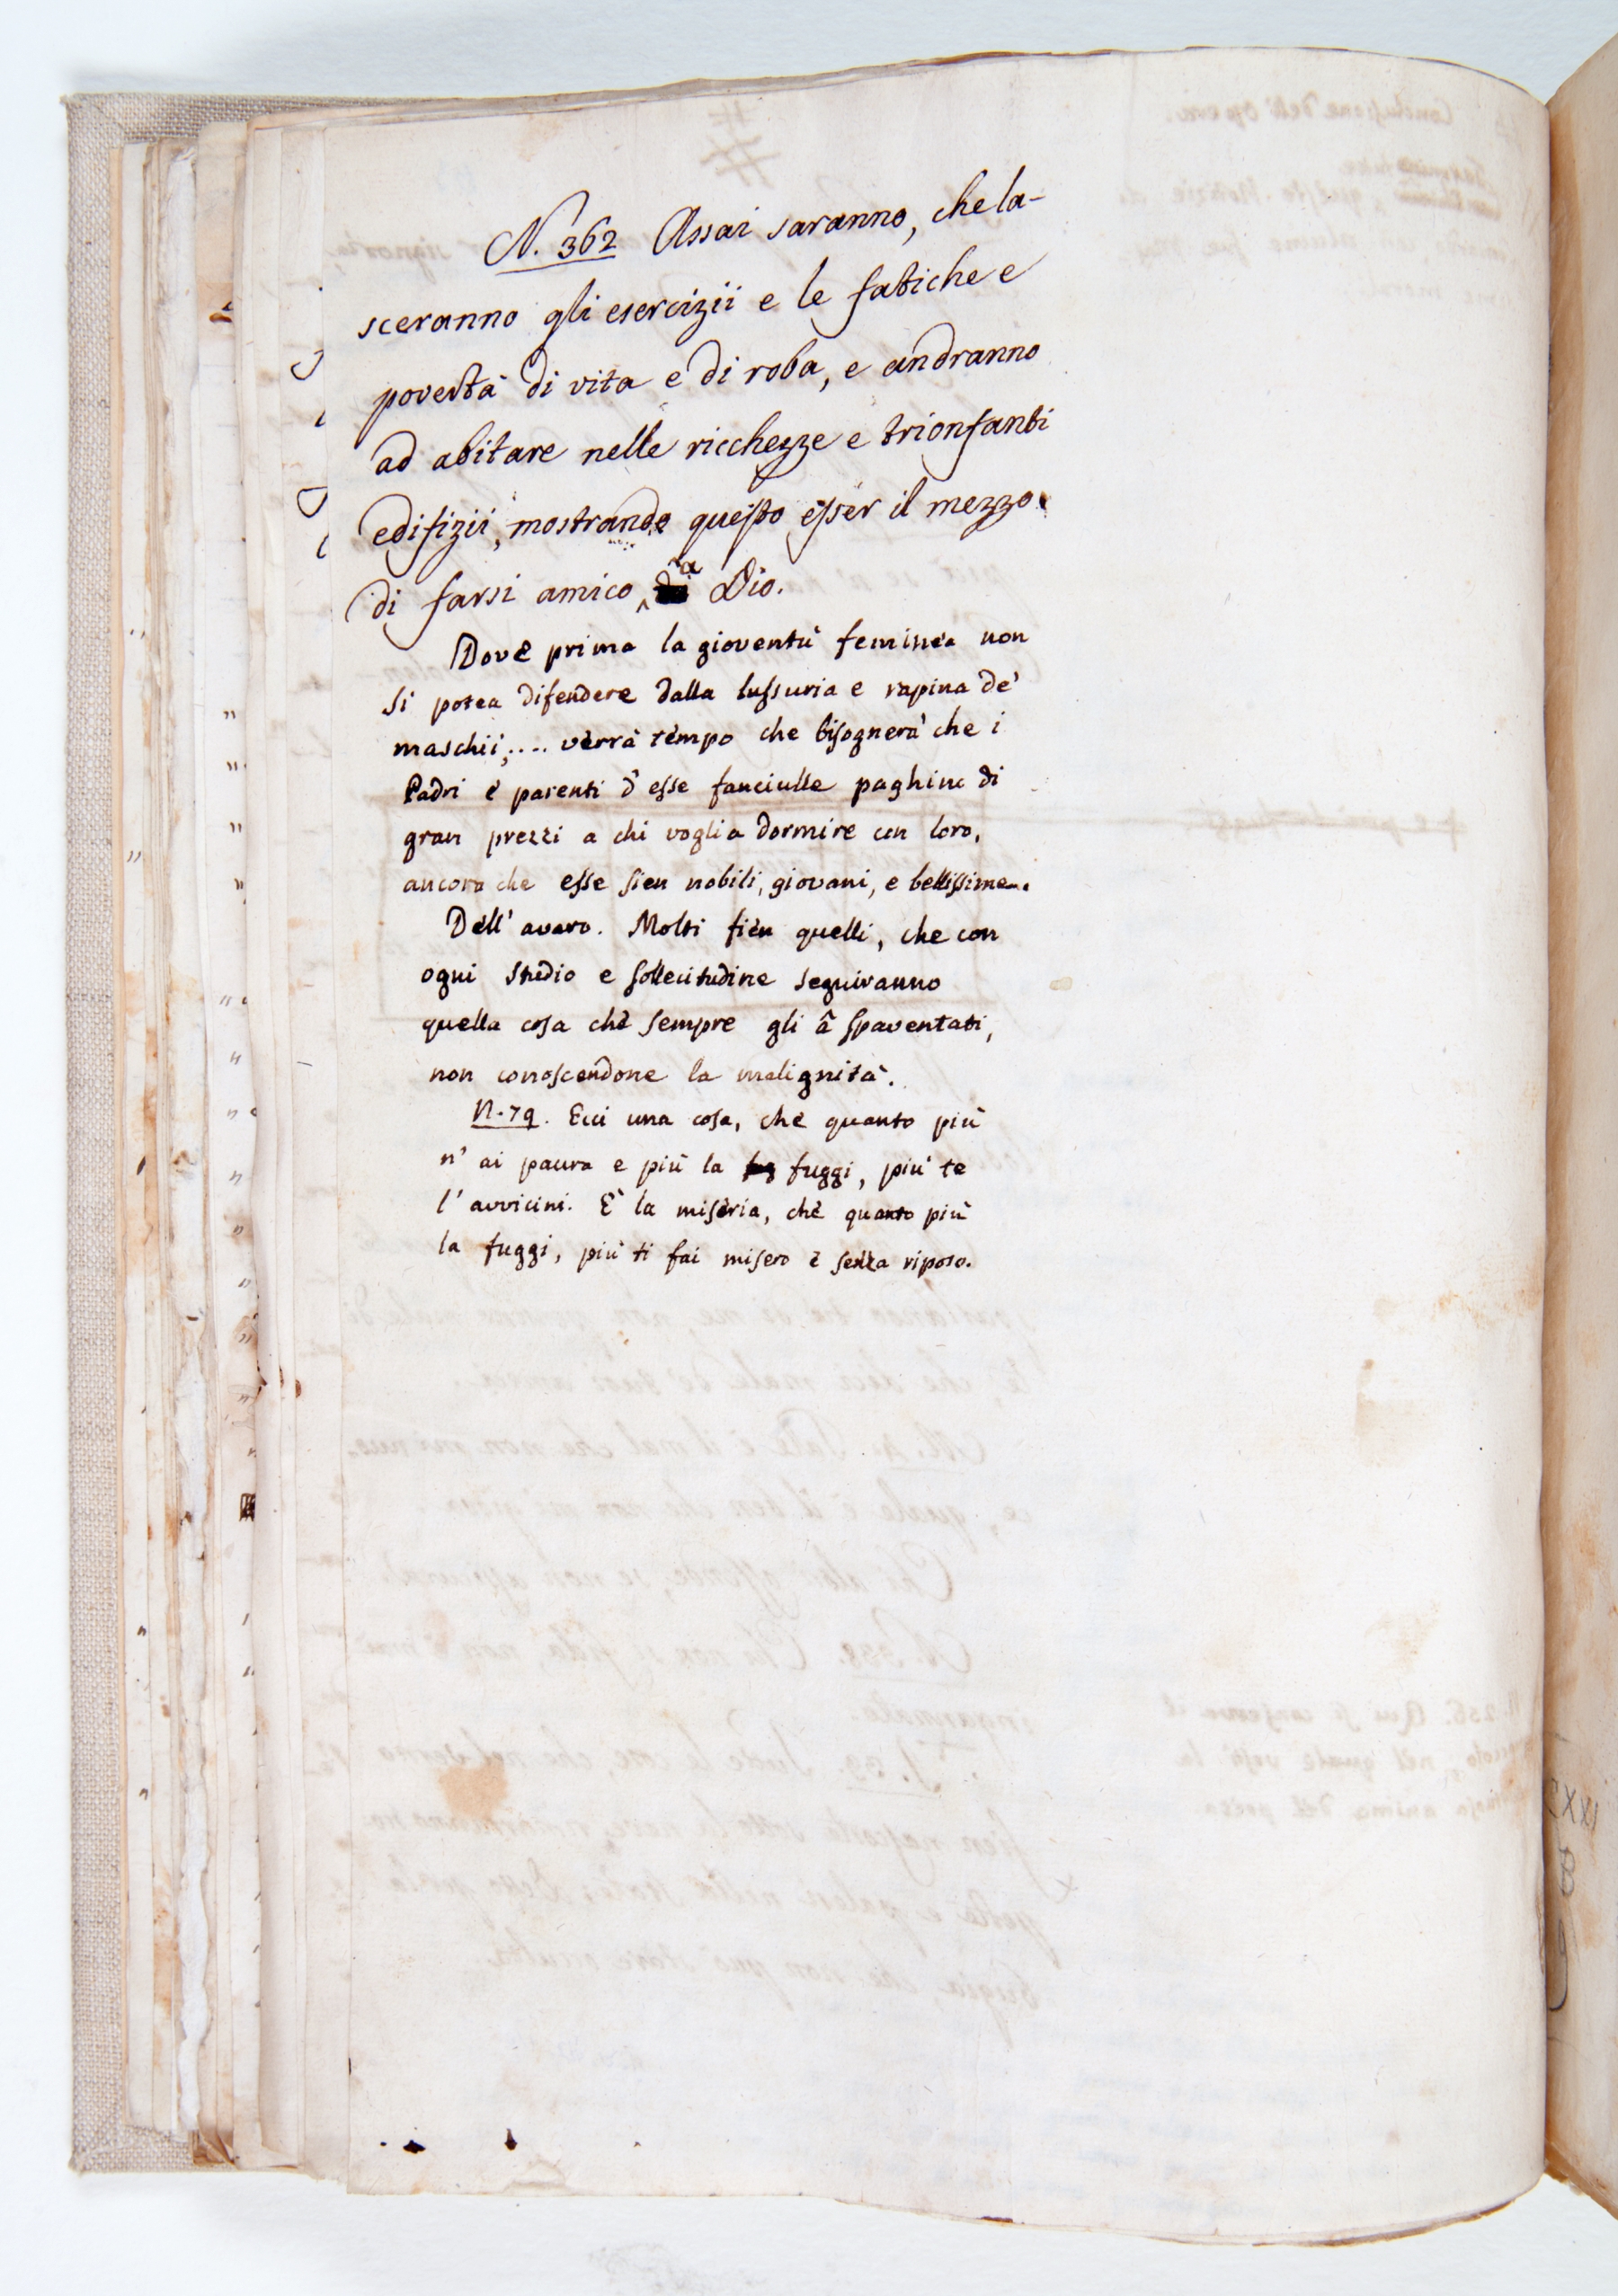 N. 362 Assai saranno, che la-
sceranno gli esercizii e le fatiche e
povertà di vita e di roba, e andranno
ad abitare nelle ricchezze e trionfanti
edifizii, mostrando questo esser il mezzo
di farsi amico a Dio.
Dove prima la gioventù feminea non
si potea difendere dalla lussuria e rapina de'
maschii;.... verrà tempo che bisognerà che i
Padri e parenti d'esse fanciulle paghino di
gran prezzi a chi voglia dormire con loro,
ancora che esse sien nobili, giovani, e bellissime...
Dell'avaro. Molti fien quelli, che con
ogni studio e sollecitudine seguiranno
quella cosa che sempre gli â spaventati,
non conoscendone la malignità.
N. 79. Ecci una cosa, che quanto più
n'ai paura e più la fuggi, più te
l'avvicini. È la miseria, che quanto più
la fuggi, più ti fai misero e senza riposo.